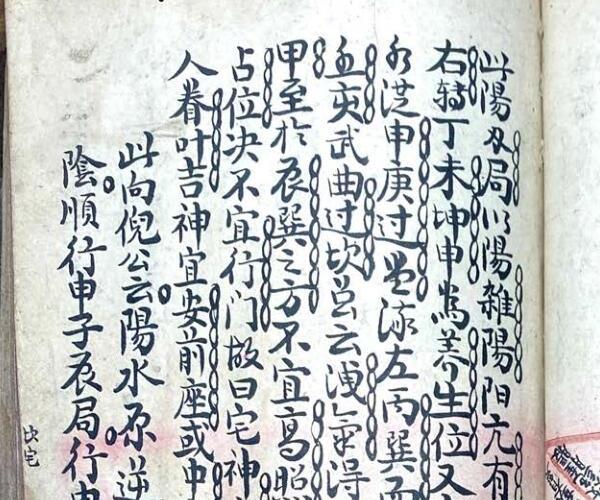 此陽局以陽雜陽亢有
右轉丁未坤申為養生位又
申庚过左丙巽而
亥武曲过坎云洩氣得
甲至於辰巽之方不宜高照
占位决不宜行门故曰宅神
人眷叶吉神宜安前座或中
此向倪公云陽水原逆
陰順行申子辰局行
坎宅